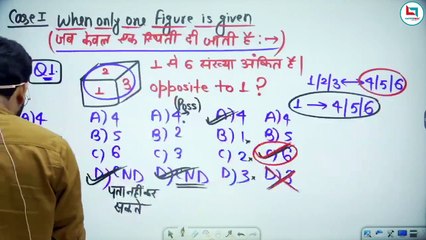 Case I When only one figure is given
(जब केवल एक स्थिती दी जाती है :→)
Q1.
2
1 3
1 से 6 संख्या अंकित है।
opposite to 1 ?
1/2/3 ↔ 4/5/6
1 → 4/5/6
(Poss)
A) 4 A) 4 A) 4 A) 4
B) 5 B) 2 B) 1 × B) 5
C) 6 C) 3 C) 2 × C) 6
D) CND D) CND D) 3 × D) 3
पता नहीं कर
सकते